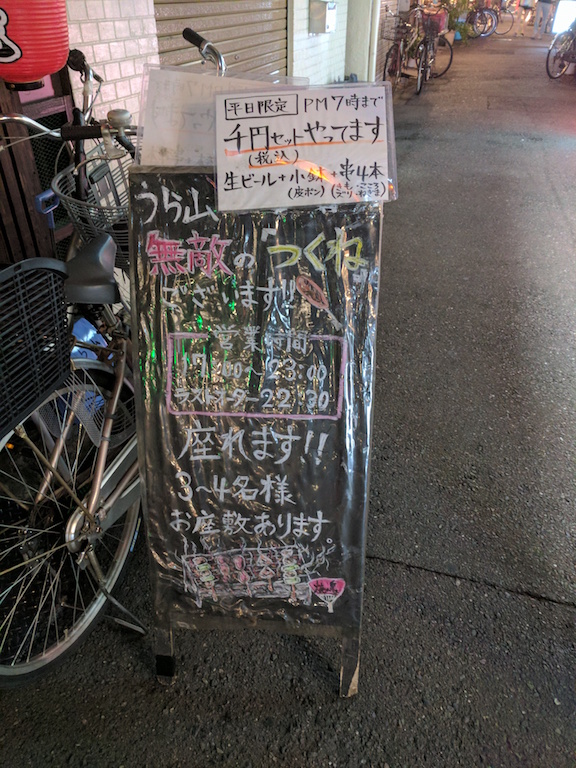 平日限定 PM7時まで
千円セットやってます
(税込)
生ビール+小鉢+串4本
(皮ポン)
うら山
無敵の『つくね』
ございます!!
営業時間
17:00〜23:00
ラストオーダー22:30
座れます!!
3〜4名様
お座敷あります。
焼鳥